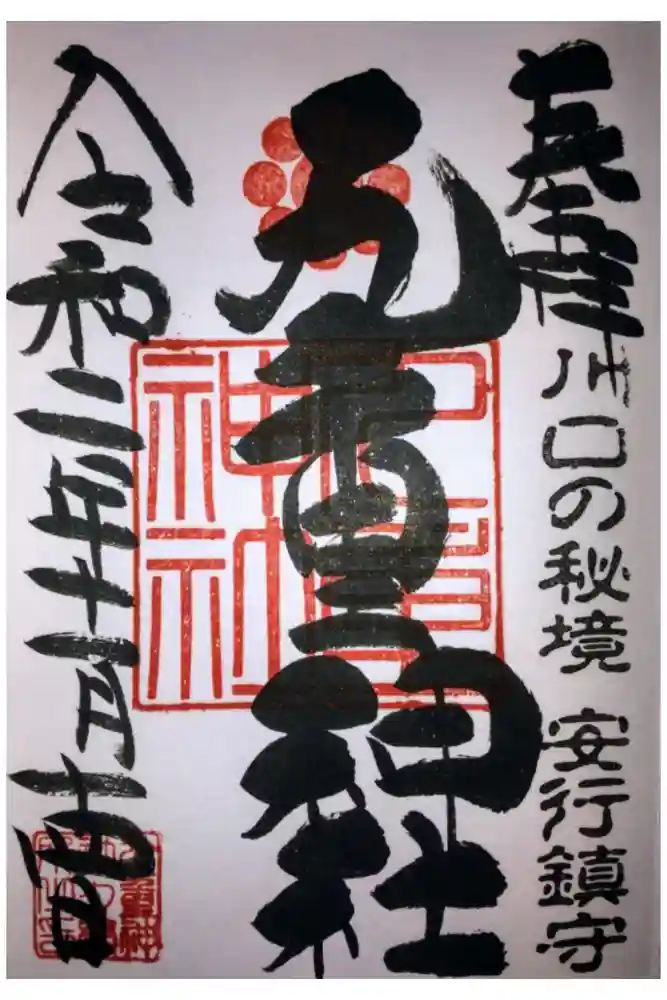 奉拝
川口の秘境 安行鎮守
九重神社
九重神社
令和二年十一月十四日